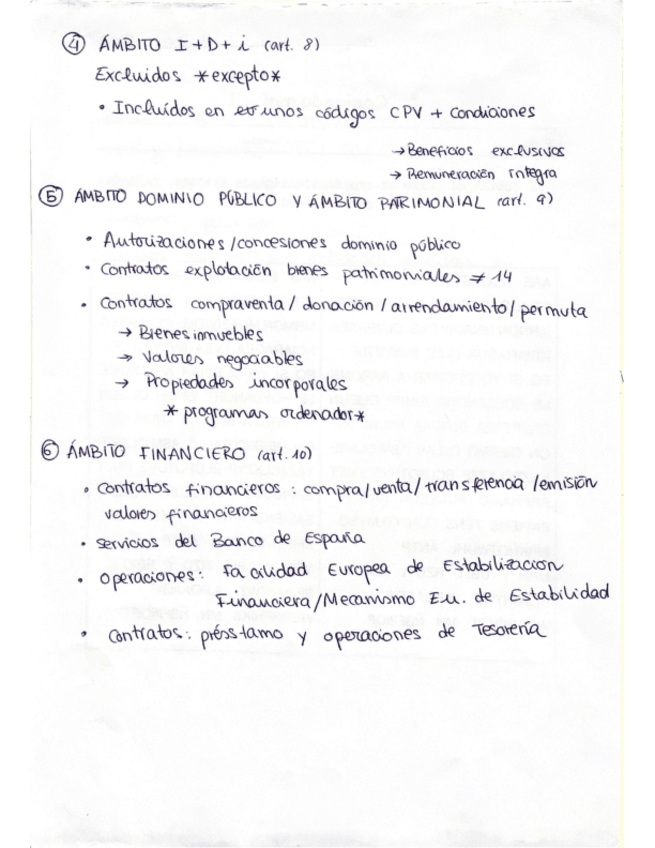 ④ ÁMBITO I+D+i (art. 8)
Excluidos *excepto*
• Incluídos en unos códigos CPV + Condiciones
→ Beneficios exclusivos
→ Remuneración íntegra
⑤ ÁMBITO DOMINIO PÚBLICO Y ÁMBITO PATRIMONIAL (art. 9)
• Autorizaciones/concesiones dominio público
• Contratos explotación bienes patrimoniales ≠ 14
• Contratos compraventa/donación/arrendamiento/permuta
→ Bienes inmuebles
→ Valores negociables
→ Propiedades incorporales
* programas ordenador*
⑥ ÁMBITO FINANCIERO (art. 10)
• Contratos financieros: compra/venta/transferencia/emisión
valores financieros
• Servicios del Banco de España
• Operaciones: Facilidad Europea de Estabilización
Financiera/Mecanismo Eu. de Estabilidad
• Contratos: présstamo y operaciones de Tesorería